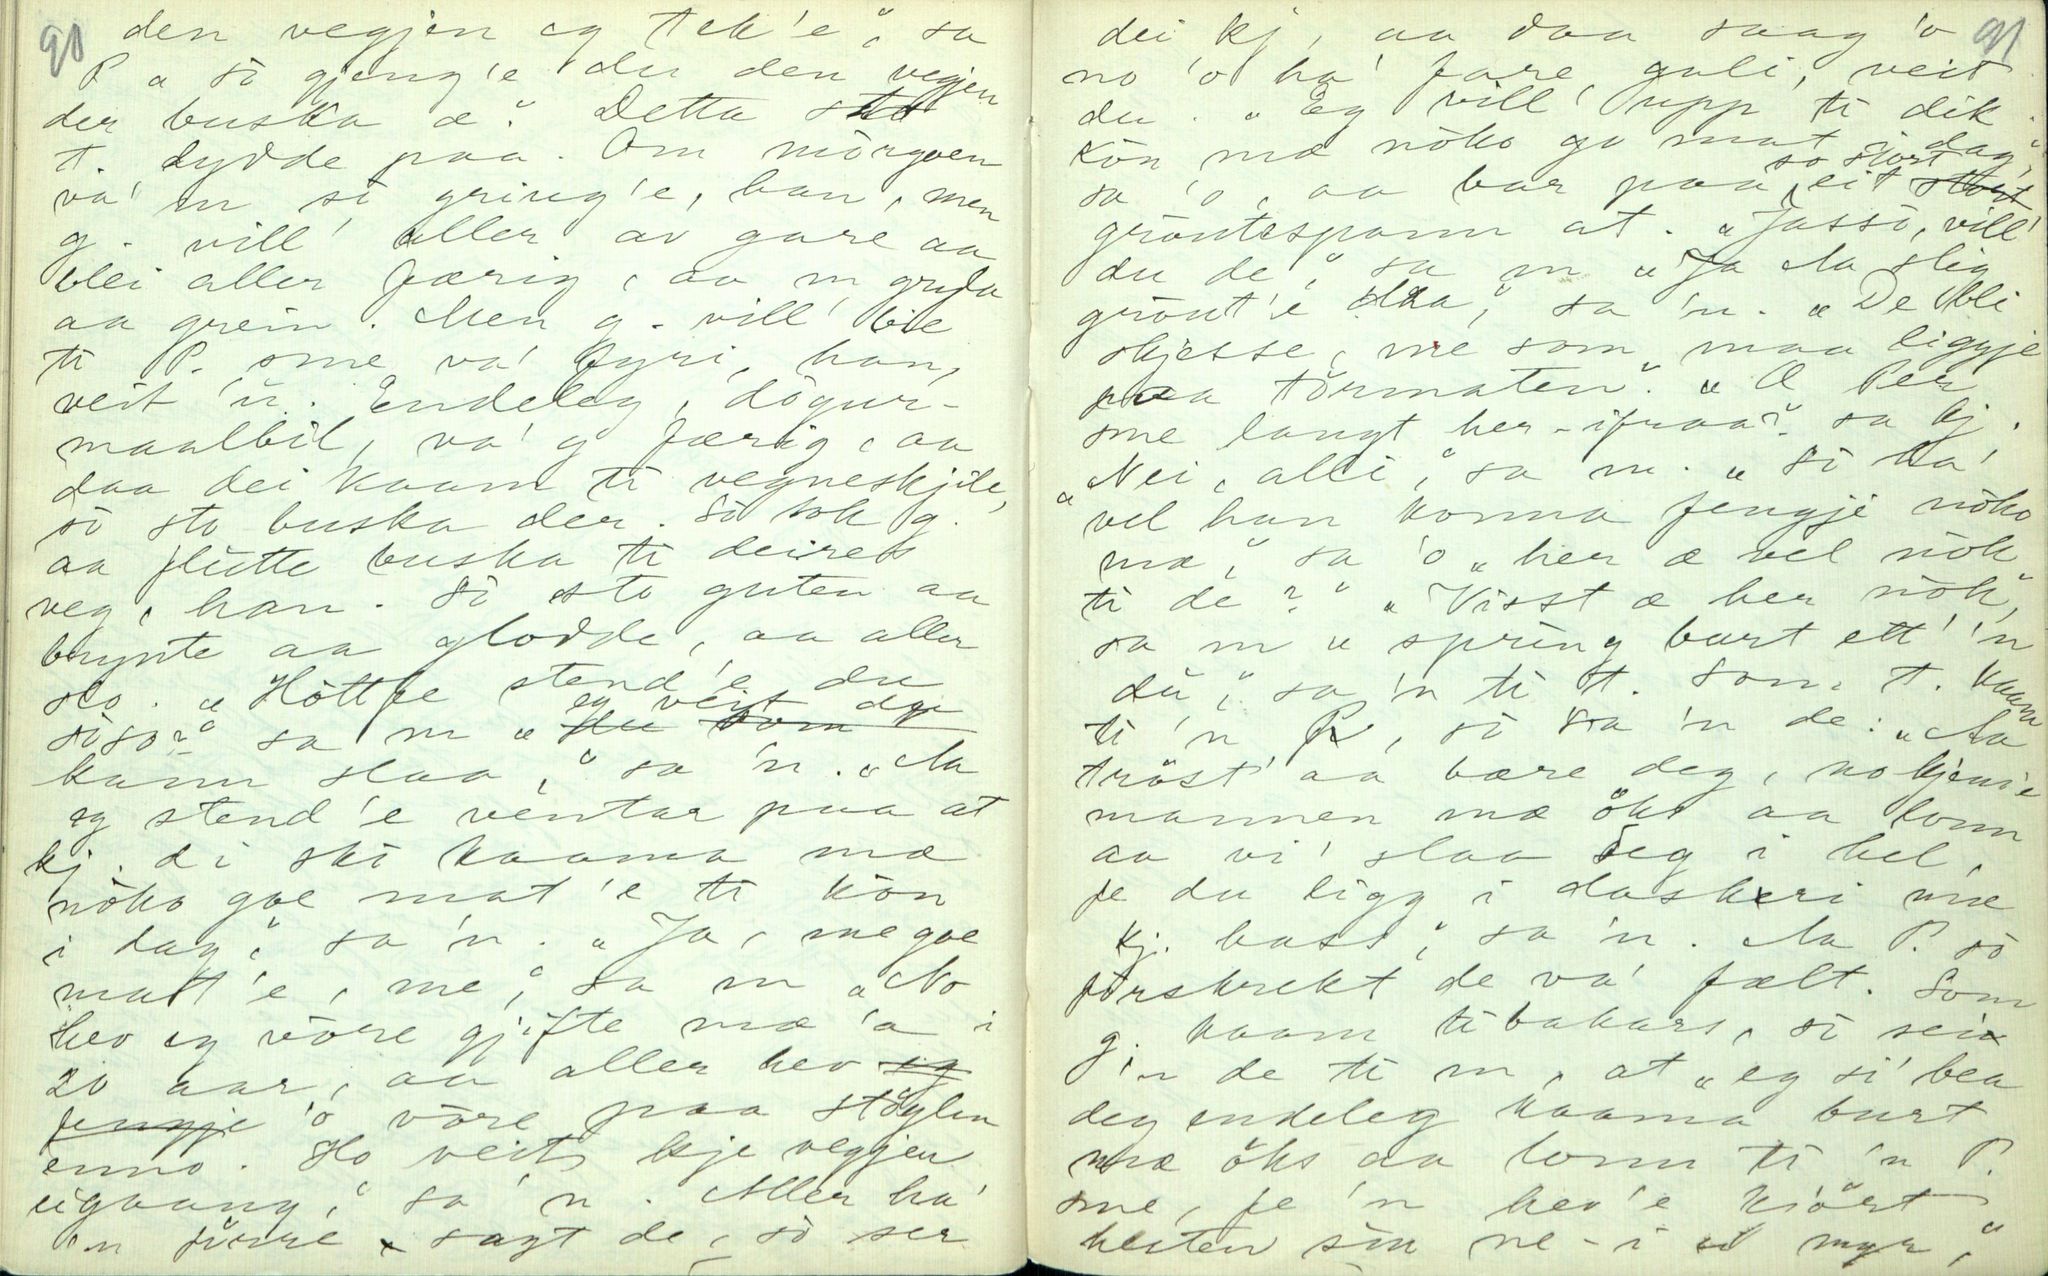 90
den vegjen eg tek'e", sa
P „ so gjeng'e du den vegjen
der buska æ". Detta
t. lydde paa. Om mórgoen
va' m so gring'e, han, men
g. vill' aller av gare aa
blei aller færig, aa m
aa grein. Men g. vill' bie
ti P. sme va' fyri, han,
veit 'u. Endeleg, dögur-
maalbil, va' g færig, aa
daa dei kaam ti vegneskjile,
so sto buska der. So tok g.
aa flutte buska ti deires
veg, han. So sto guten aa
brynte aa glodde, aa aller
slo. „Höttfe stend'e du
soso?" sa m „eg veit du
kann slaa," sa 'n. „Aa
eg stend'e ventar paa at
kj. di ski kaama mæ
nöko goe mat'e ti kön
i dag," sa 'n. „Ja, me goe
matt'e, me," sa m „No
hev eg vöre gjifte mæ 'a i
20 aar, aa aller hev eg
fengje 'o vöre paa stöylen
enno. Ho veit kje vegjen
eigaang," sa 'n. Aller ha'
'n fürre sagt de, so ser
91
dei kj, aa daa saag 'o
no 'o ha' fare gali, veit
du. „Eg vill' upp ti dik
kön mæ nöko go mat i dag",
sa 'o, aa bar paa so stort eit stort
gröntespann at. „Jasso, vill'
du de," sa m „Ja Aa slig
grönt'e daa," sa 'n. „De bli
skjesse, me som maa liggje
paa törrmaten". „Æ Per
sme langt her-ifraa?" sa kj.
„Nei, alli," sa m. „So ha'
vel han konna fengje nöko
mæ," sa 'o „her æ vel nök
ti de?" „Visst æ her nök",
sa m „spring burt ett' 'n
du," sa 'n ti t. Som t. kaam
ti 'n P, so sa 'n de: „Aa
tröst' aa bære deg, no kjem'e
mannen mæ öks aa tonn
aa vi' slaa deg i hel,
fe du ligg i daskeri mæ
kj. hass," sa 'n. Aa P. so
förskrekt de va' fælt. Som
g. kaam tibakars, so sei
'n de ti m, at „eg si' bea
deg endeleg kaama burt
mæ öks aa tonn ti 'n P.
sme, fe 'n hev'e kjört
hesten sin ne-i ei myr,"